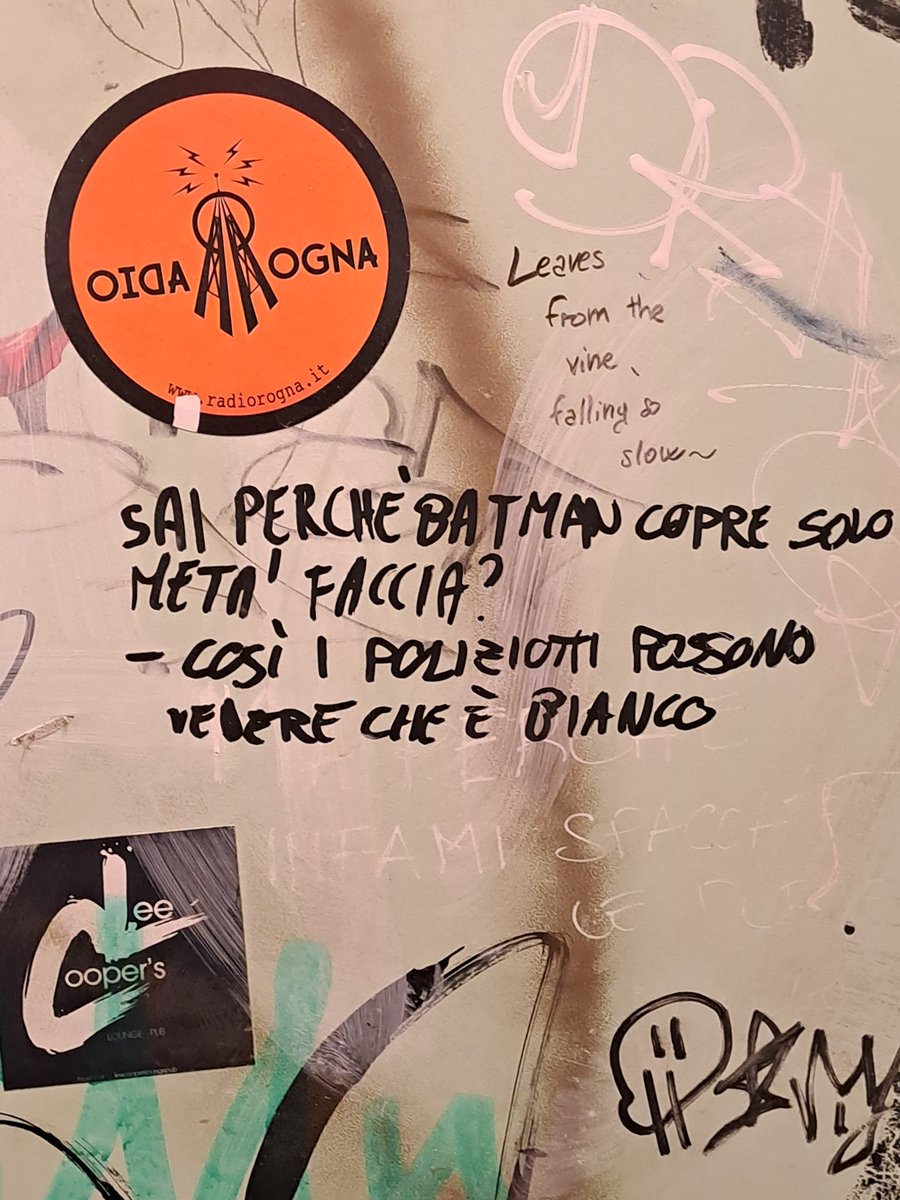 OIDAR ROGNA
www.radiorogna.it
Leaves
from the
vine,
falling so
slow~
SAI PERCHÈ BATMAN COPRE SOLO
META' FACCIA?
- COSÌ I POLIZIOTTI POSSONO
VEDERE CHE È BIANCO
INFAMI SPACCHI
LE
Lee
Cooper's
LOUNGE PUB